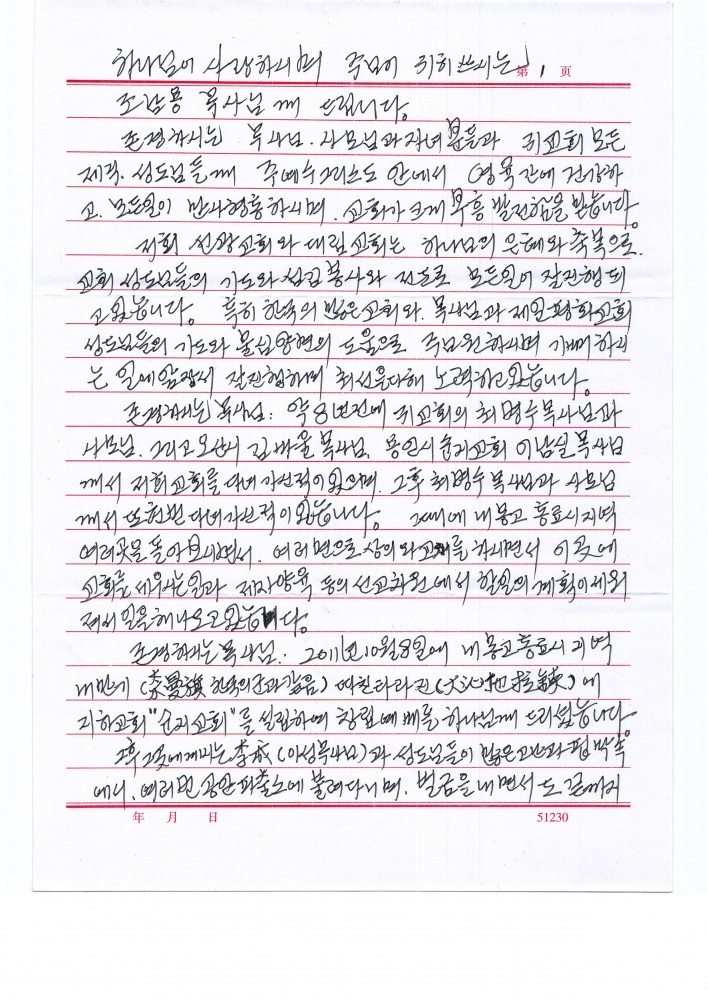 하나님이 사랑하시며 주님이 귀히 쓰시는 第 1 页
조남용 목사님 께 드립니다.
존경하시는 목사님. 사모님과 자녀분들과 귀교회 모든
제직. 성도님들께 주예수그리스도 안에서 영육간에 건강하
고. 모든일이 만사형통하시며. 교회가 크게 부흥발전함을 믿습니다.
저희 선광교회와 대림교회는 하나님의 은혜와 축복으로.
교회 성도님들의 기도와 섬김 봉사와 전도로 모든일이 잘진행되
고 있습니다. 특히 한국의 많은교회와. 목사님과 제일평화교회
성도님들의 기도와 물심양면의 도움으로 주님원하시며 기뻐하시
는 일에 앞장서 잘진행하며 최선을다해 노력하고 있습니다.
존경하시는 목사님: 약 8년전에 귀교회의 최명수목사님과
사모님. 그리고 오산시 김바울 목사님, 용인시 순리교회 이남실 목사님
께서 저희 교회를 다녀가신적이 있으며. 그후 최명수 목사님과 사모님
께서 또한번 다녀가신적이 있습니다. 그때에 내몽고 통료시지역
여러곳을 돌아보시면서. 여러면으로 상의와 교제를 하시면서 이곳에
교회를 세우는일과 제자양육 등의 선교차원에서 할일의 계획이 세워
져서 일을해 나오고 있습니다.
존경하시는 목사님. 2011년 10월 8일에 내몽고통료시 지역
내만기 (奈曼旗 한국의군과 같음) 따친타라진 (大沁他拉鎮) 에
지하교회 "순리교회"를 설립하며 창립예배를 하나님께 드리셨습니다.
그후 그곳에 계시는 李成 (이성목사님) 과 성도님들이 많은 고난과 핍박속
에서. 여러번 공안파출소에 불려다니며. 벌금을 내면서도 끝까지
年 月 日 51230